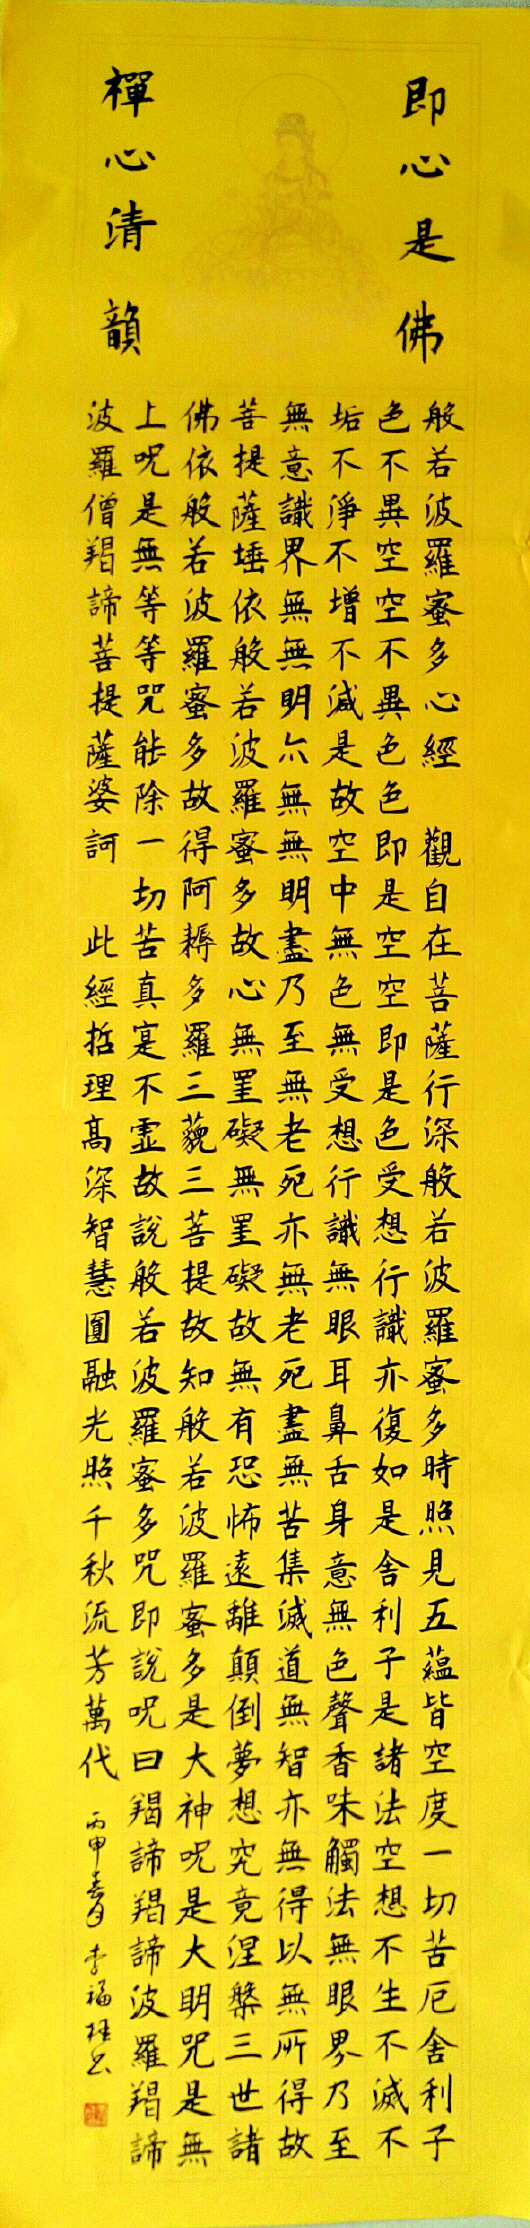 即心是佛
禪心清韻
般若波羅蜜多心經 觀自在菩薩行深般若波羅蜜多時照見五蘊皆空度一切苦厄舍利子
色不異空空不異色色即是空空即是色受想行識亦復如是舍利子是諸法空想不生不滅不
垢不淨不增不減是故空中無色無受想行識無眼耳鼻舌身意無色聲香味觸法無眼界乃至
無意識界無無明亦無無明盡乃至無老死亦無老死盡無苦集滅道無智亦無得以無所得故
菩提薩埵依般若波羅蜜多故心無罣礙無罣礙故無有恐怖遠離顛倒夢想究竟涅槃三世諸
佛依般若波羅蜜多故得阿耨多羅三藐三菩提故知般若波羅蜜多是大神呪是大明咒是無
上呪是無等等咒能除一切苦真寔不虛故說般若波羅蜜多咒即說呪曰羯諦羯諦波羅羯諦
波羅僧羯諦菩提薩婆訶 此經哲理高深智慧圓融光照千秋流芳萬代 丙申春月 李福桂書